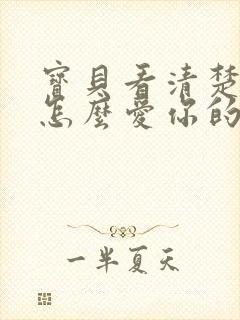 寶貝看清楚
怎麼愛你的
一半夏天